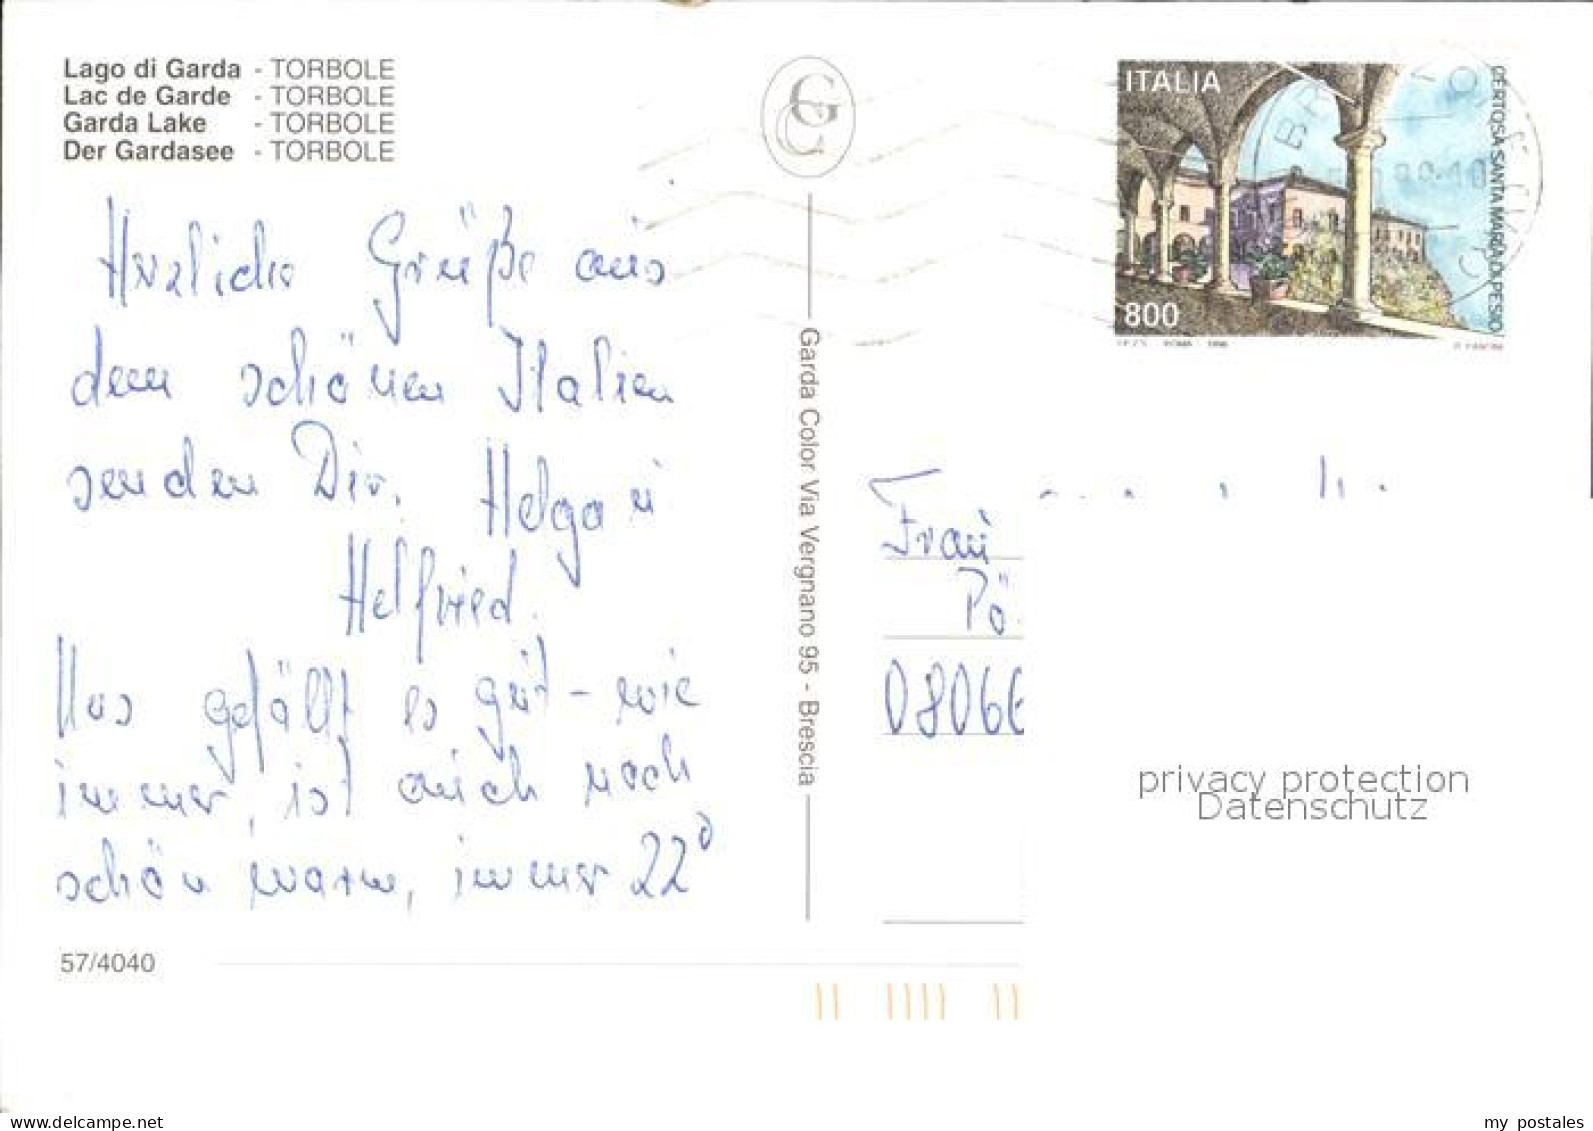 Lago di Garda - TORBOLE
Lac de Garde - TORBOLE
Garda Lake - TORBOLE
Der Gardasee - TORBOLE
GC
ITALIA
800
CERTOSA SANTA MARIA DI PESIO
I.P.Z.S. ROMA 1996
Herzliche Grüße aus
dem schönen Italien
senden Dir. Helga u
Helfried.
Uns gefällt es gut - wie
immer, ist auch noch
schön warm, immer 22°
Garda Color Via Vergnano 95 - Brescia
Frau
Pö
08066
privacy protection
Datenschutz
57/4040
my postales